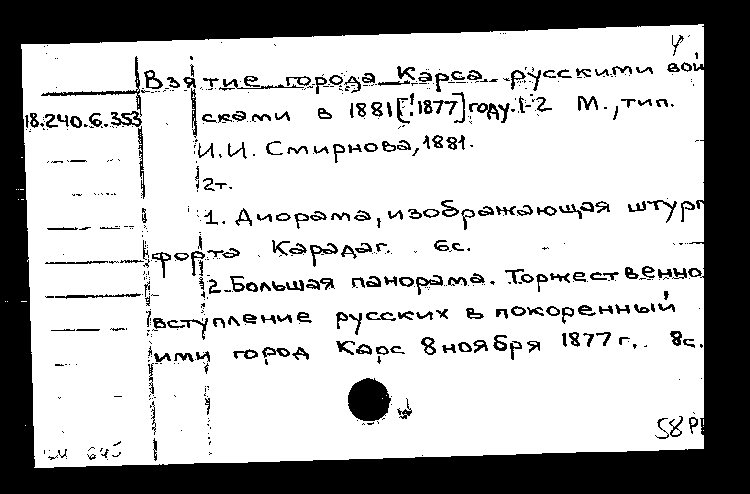 Взятие города Карса русскими вой
18.240.6.353
сками в 1881[!1877]году. 1-2 М., тип.
И.И. Смирнова, 1881.
2т.
1. Диорама, изображающая штурм
форта Карадаг. 6с.
2. Большая панорама. Торжественно
вступление русских в покоренный
ими город Карс 8 ноября 1877 г. 8с.
58